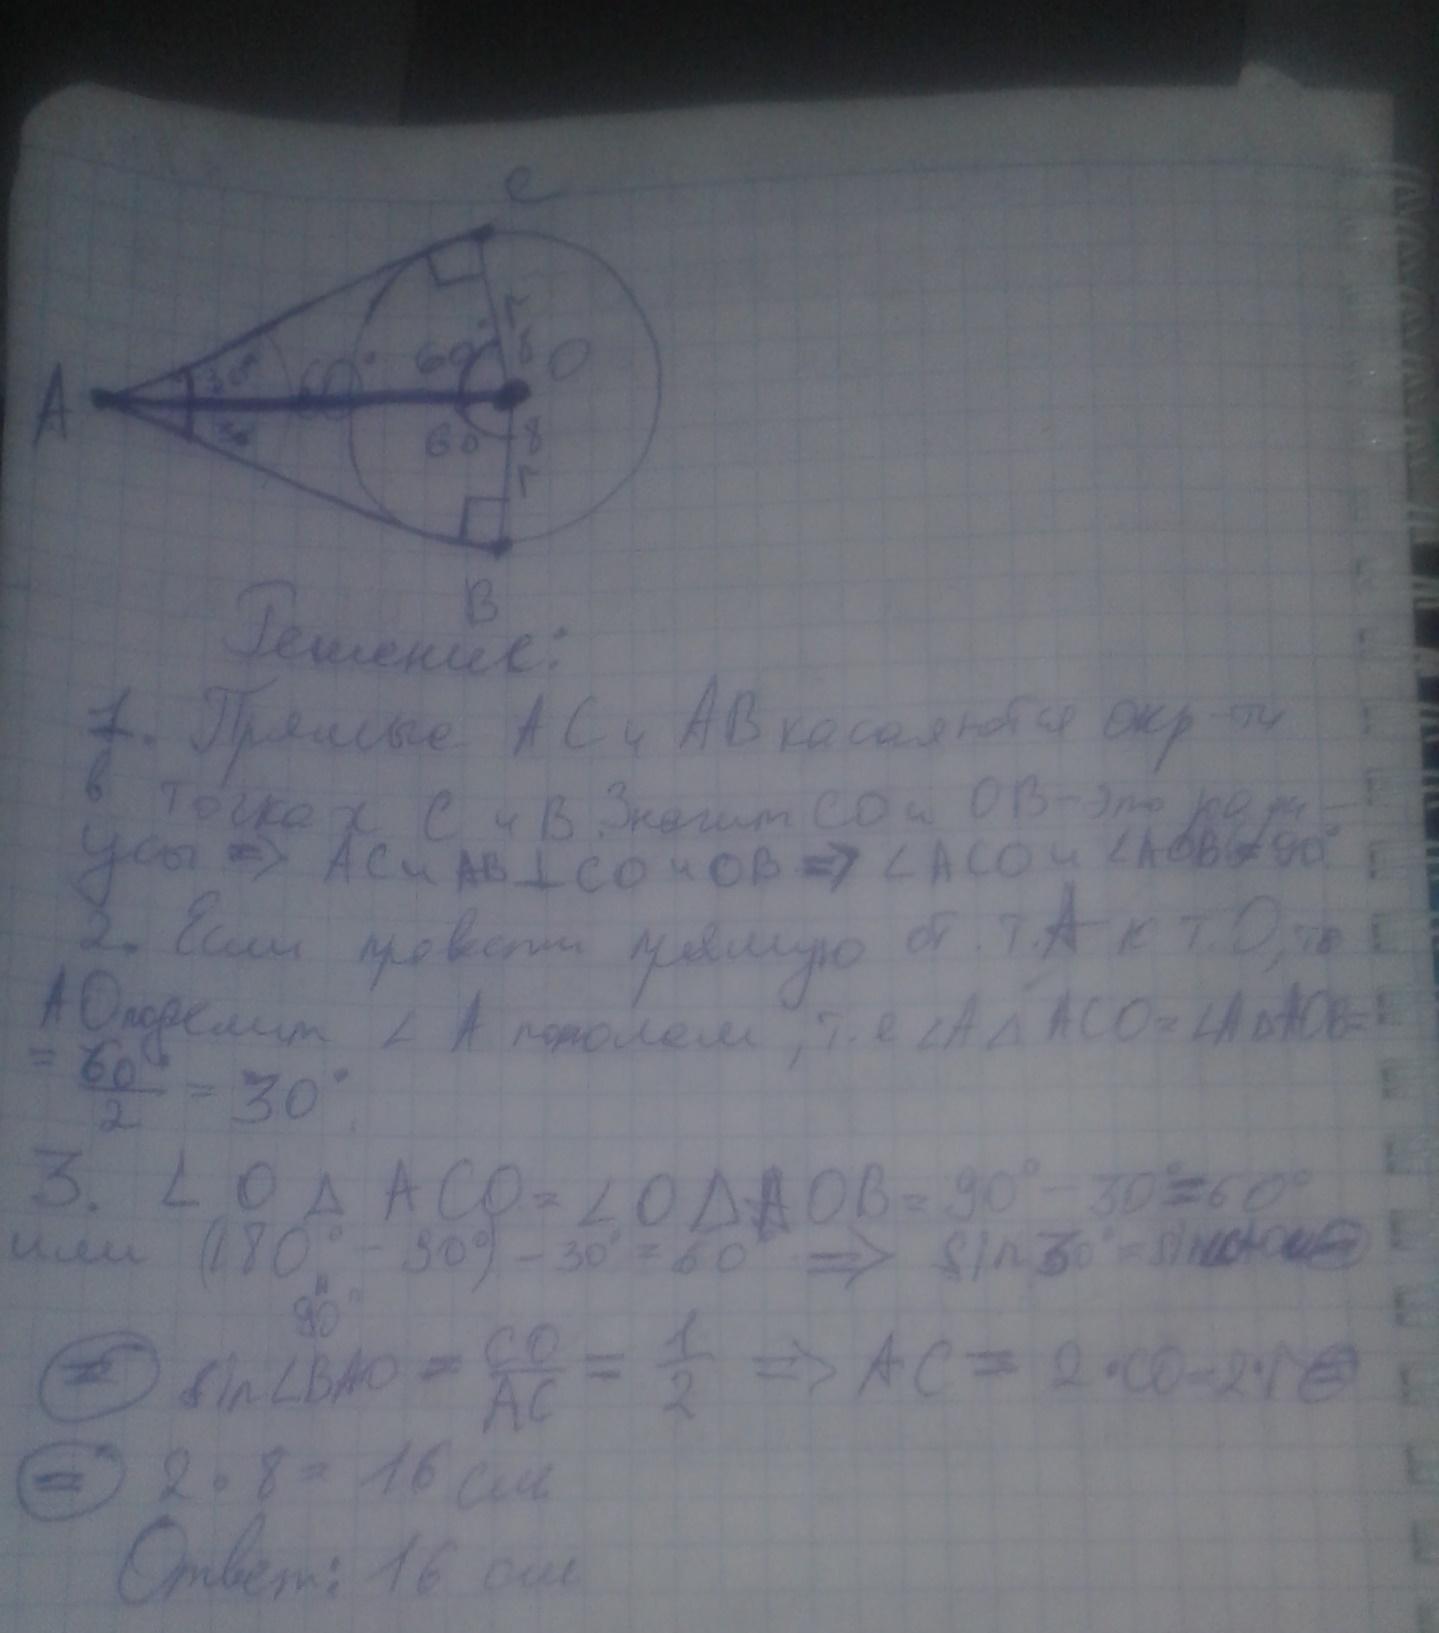 C
r
8
O
60°
30°
60°
A
30
60
8
r
B
Решение:
1. Прямые AC и AB касаются окр-ти
в точках C и B. Значит CO и OB - это ради-
усы => AC и AB ⊥ CO и OB => ∠ACO и ∠AOB = 90°
2. Если провести прямую от т.A к т.O, то
AO поделит ∠A пополам, т.е ∠A △ ACO = ∠A △ AOB =
= 60°/2 = 30°.
3. ∠O △ ACO = ∠O △ AOB = 90° - 30° = 60°
или (180° - 90°) - 30° = 60° => sin 30° =
90°
= sin∠BAO = CO/AC = 1/2 => AC = 2·CO = 2·r =
= 2·8 = 16 см
Ответ: 16 см